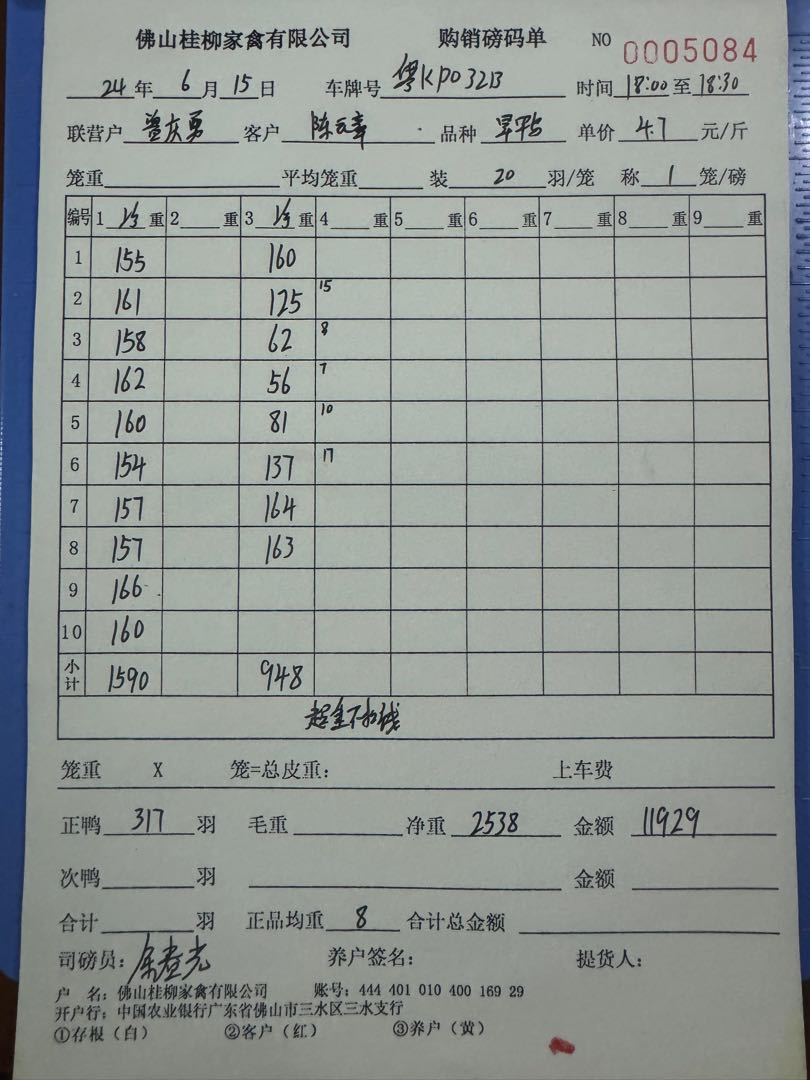 佛山桂柳家禽有限公司 购销磅码单 NO 0005084
24年 6月 15日 车牌号 粤KP0321B 时间 18:00至18:30
联营户 曾庆勇 客户 陈 品种 单价 4.7 元/斤
笼重 平均笼重 装 20 羽/笼 称 1 笼/磅
编号 1 净重 2 重 3 净重 4 重 5 重 6 重 7 重 8 重 9 重
1 155 160
2 161 125 15
3 158 62 8
4 162 56 7
5 160 81 10
6 154 137 17
7 157 164
8 157 163
9 166
10 160
小计 1590 948
超重不扣钱
笼重 X 笼=总皮重: 上车费
正鸭 317 羽 毛重 净重 2538 金额 11929
次鸭 羽 金额
合计 羽 正品均重 8 合计总金额
司磅员: 养户签名: 提货人:
户 名: 佛山桂柳家禽有限公司 账号: 444 401 010 400 169 29
开户行: 中国农业银行广东省佛山市三水区三水支行
①存根(白) ②客户(红) ③养户(黄)